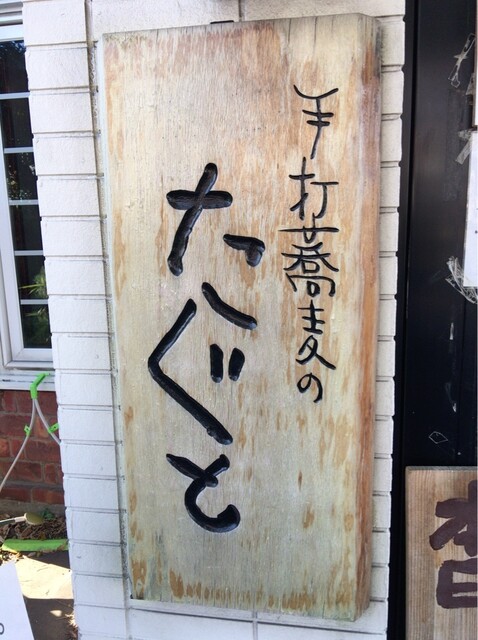 手打蕎麦の
たぐと